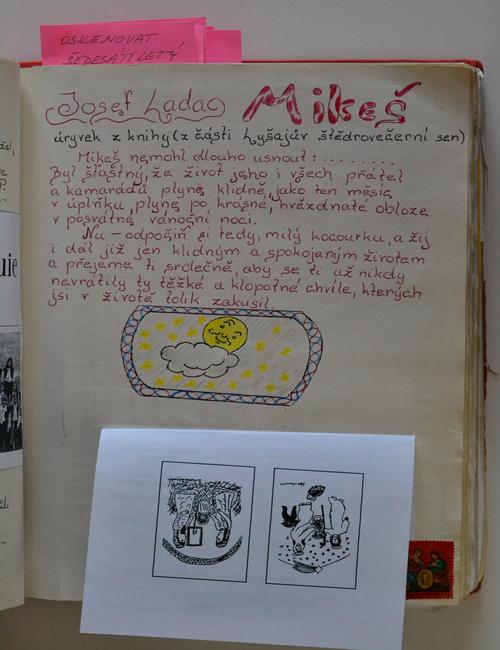 OSKENOVAT
ŠEDESÁTILETÝ
Josef Lada Mikeš
úryvek z knihy (z části Lyšajův štědrovečerní sen)
Mikeš nemohl dlouho usnout :.........
Byl šťastný, že život jeho i všech přátel
a kamarádů plyne klidně, jako ten měsíc
v úplňku, plyne po krásné, hvězdnaté obloze
v posvátné vánoční noci.
Nu – odpočiň si tedy, milý kocourku, a žij
i dál již jen klidným a spokojeným životem
a přejeme ti srdečně, aby se ti už nikdy
nevrátily ty těžké a klopotné chvíle, kterých
jsi v životě tolik zakusil.